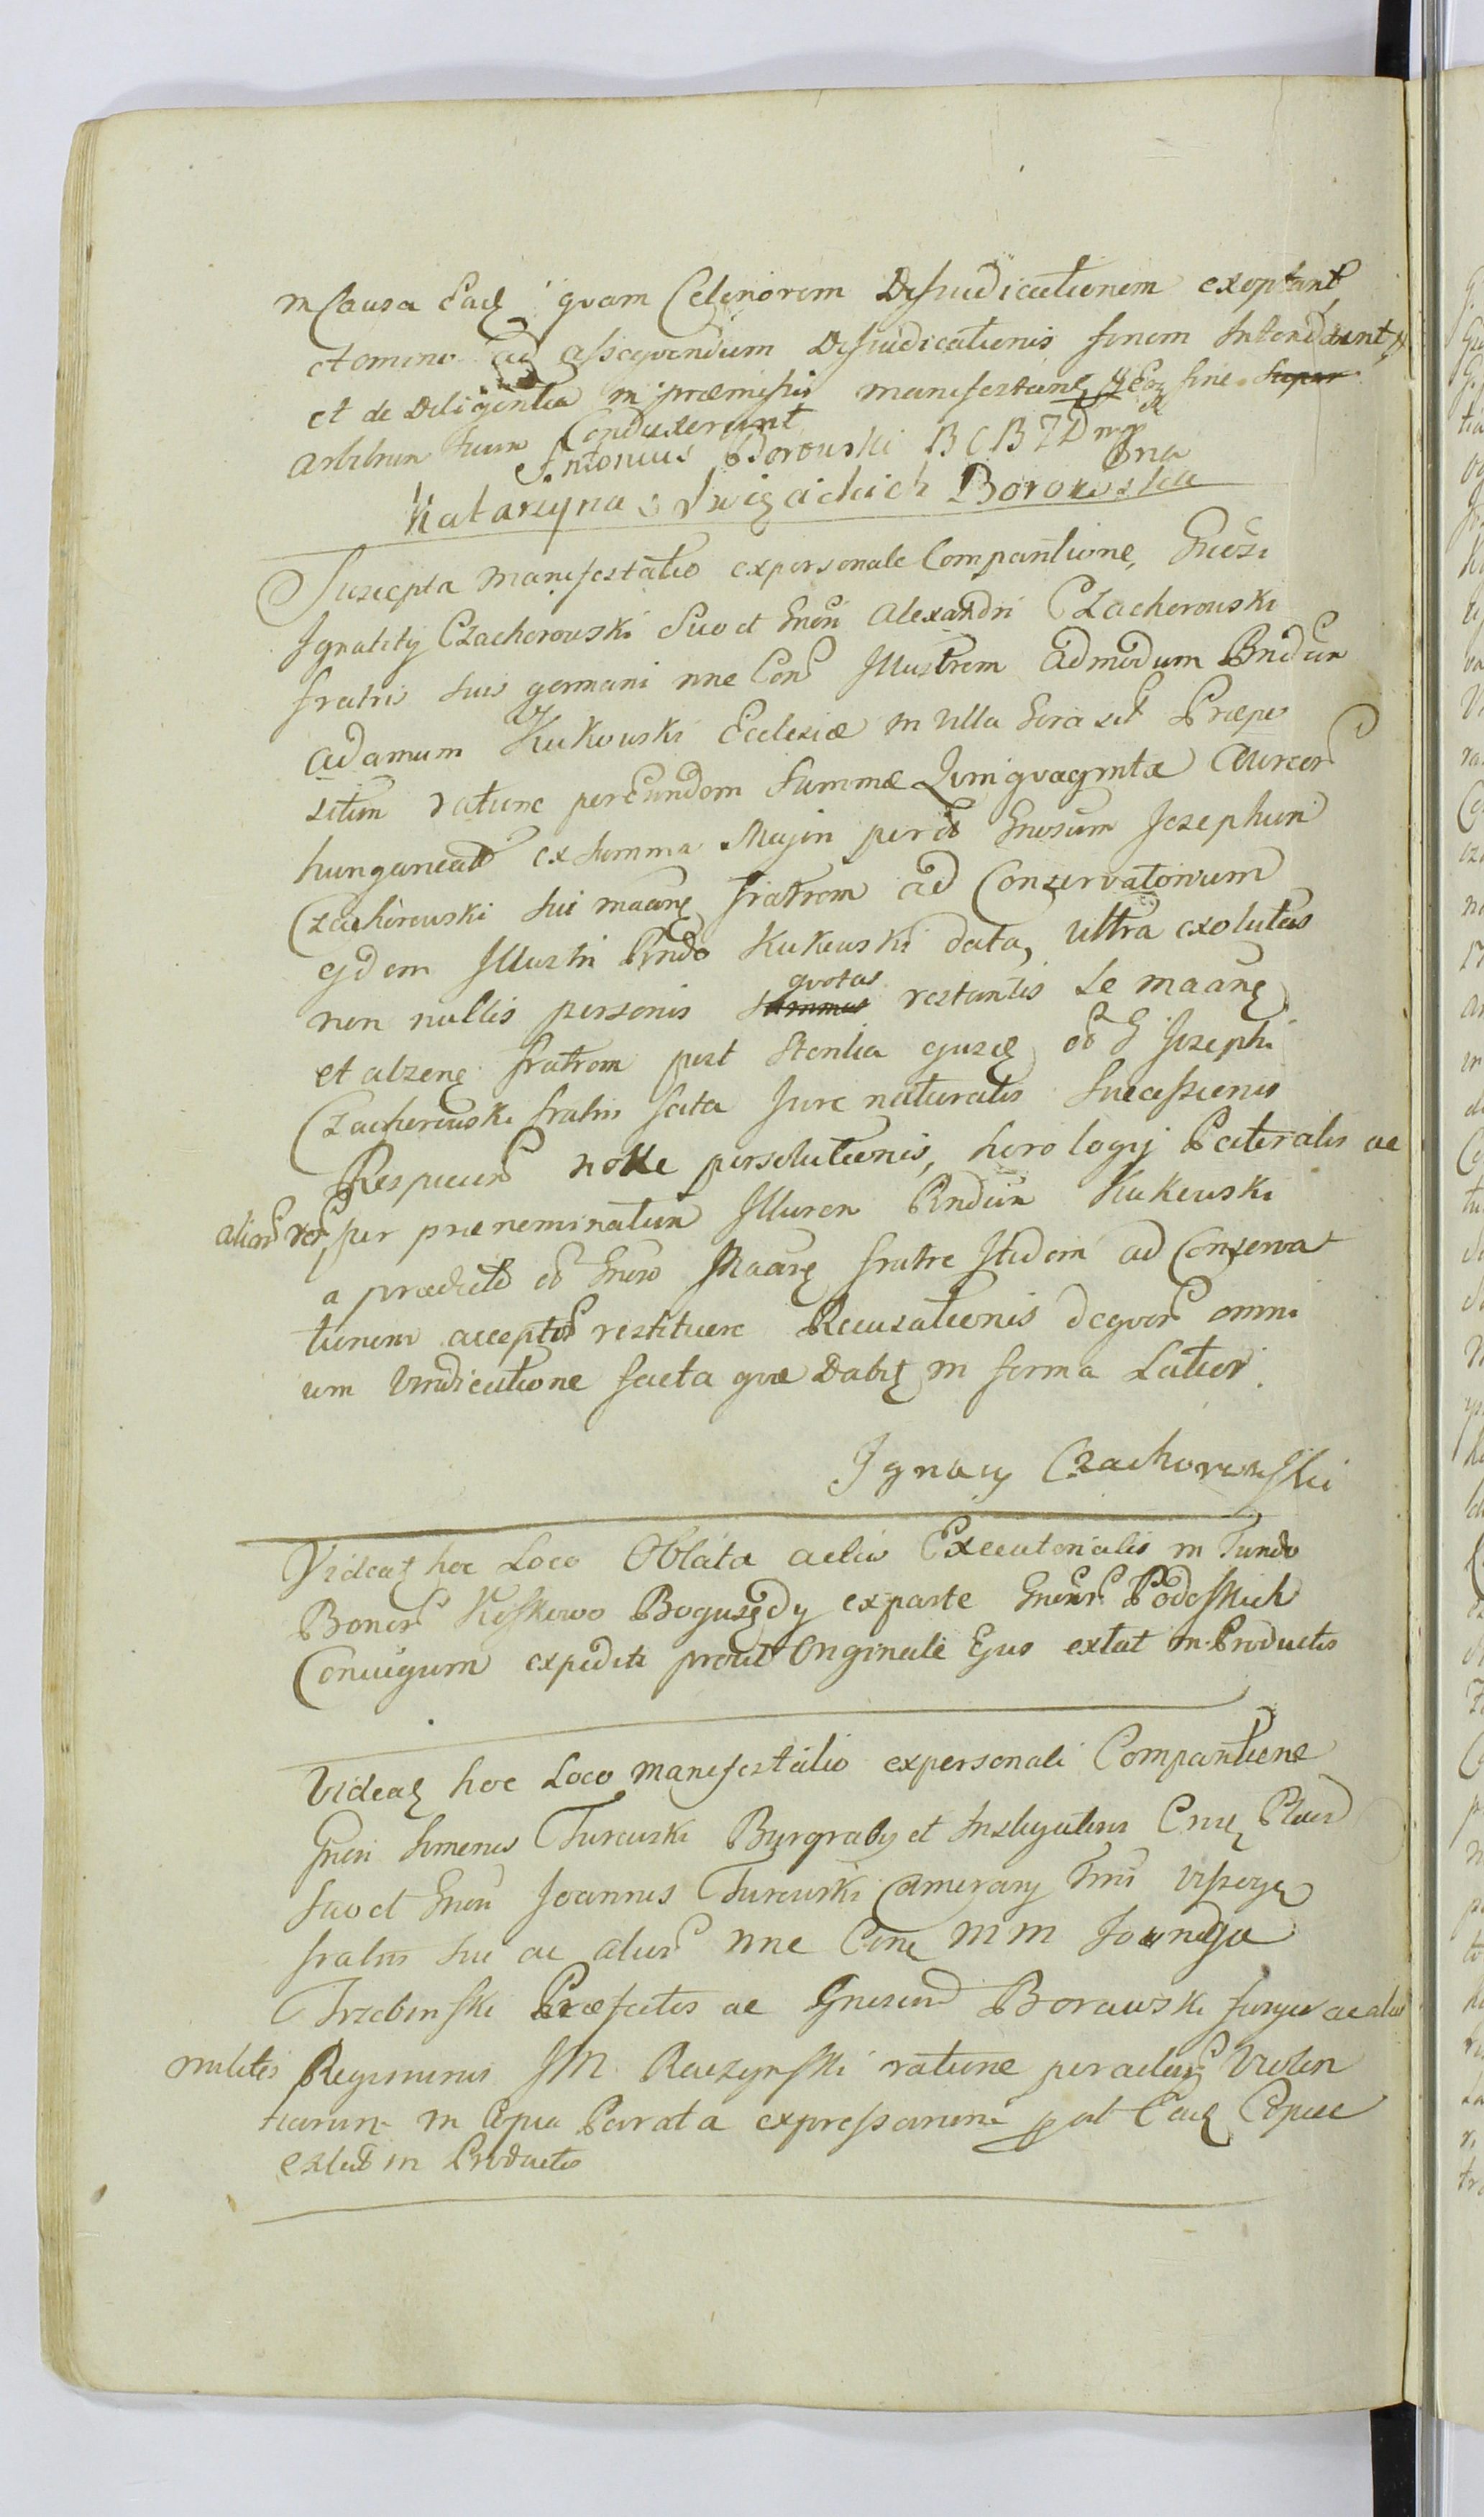 in Causa Eadę quam Celeriorem Disjudicationem exoptant
et omnino ad assequendum Disjudicationis finem Intendunt
et de Diligentia in præmissis manifestanę Eoq fine
arbitrum suum Conduxerunt
Antonius Borowski B C B Z D mp
Katarzyna z Swięcickich Borowska
Suscepta manifestatio ex personale Comparitione, Gnosi
Ignatity Czachorowski Suo et Gnosi Alexandri Czachorowski
fratris sui germani nne Cons Illustrem admodum Rndum
Adamum Kukowski Ecclesiæ in Villa Gora sit Præpo
situm ratione per Eundem Summæ Quinquaginta Aureor
hungaricali ex summa Majori per Gnosum Josephum
Czachorowski sui maanę fratrem ad Conservatorium
ejdem Illustri Rndo Kukowski data, ultra exolutas
non nullis personis quotas restantis Se maanę
et absenę fratrem post Sterilia ejuscę G Josephi
Czachorowski fratris fata Jure naturalis Successionis
Respicien nolle persolutionis, horologij Pateralis ac
alior rer per prænominatum Illurem Rndum Kukowski
a prædicto Gnoso Maanę fratre Itidem ad Conserva
tionem acceptor restituere Recusationis de quor omni
um Vindicatione facta quæ Dabtę in forma Latiori
Ignacy Czachorowski
Videatę hoc Loco Oblata actus Executorialis in Fundo
Bonor Boguszędy ex parte Gnosor Podoskich
Coniugum expediti prout Originale Ejus extat in Productis
Videatę hoc Loco manifestatio ex personali Comparitione
Gnosi Simonis Turowski Burgraby et Instigatoris
suo et Gnosi Joannis Turowski Camerary
fratris sui ac alior nne Cons M M
Trzebinski Præfectis ac Gnosum Borawski
militis Regiminis J M Raczynski ratione peractar Violen
tiarum in Copia Parata expressarum pput Eadę Copia
extat in Productis